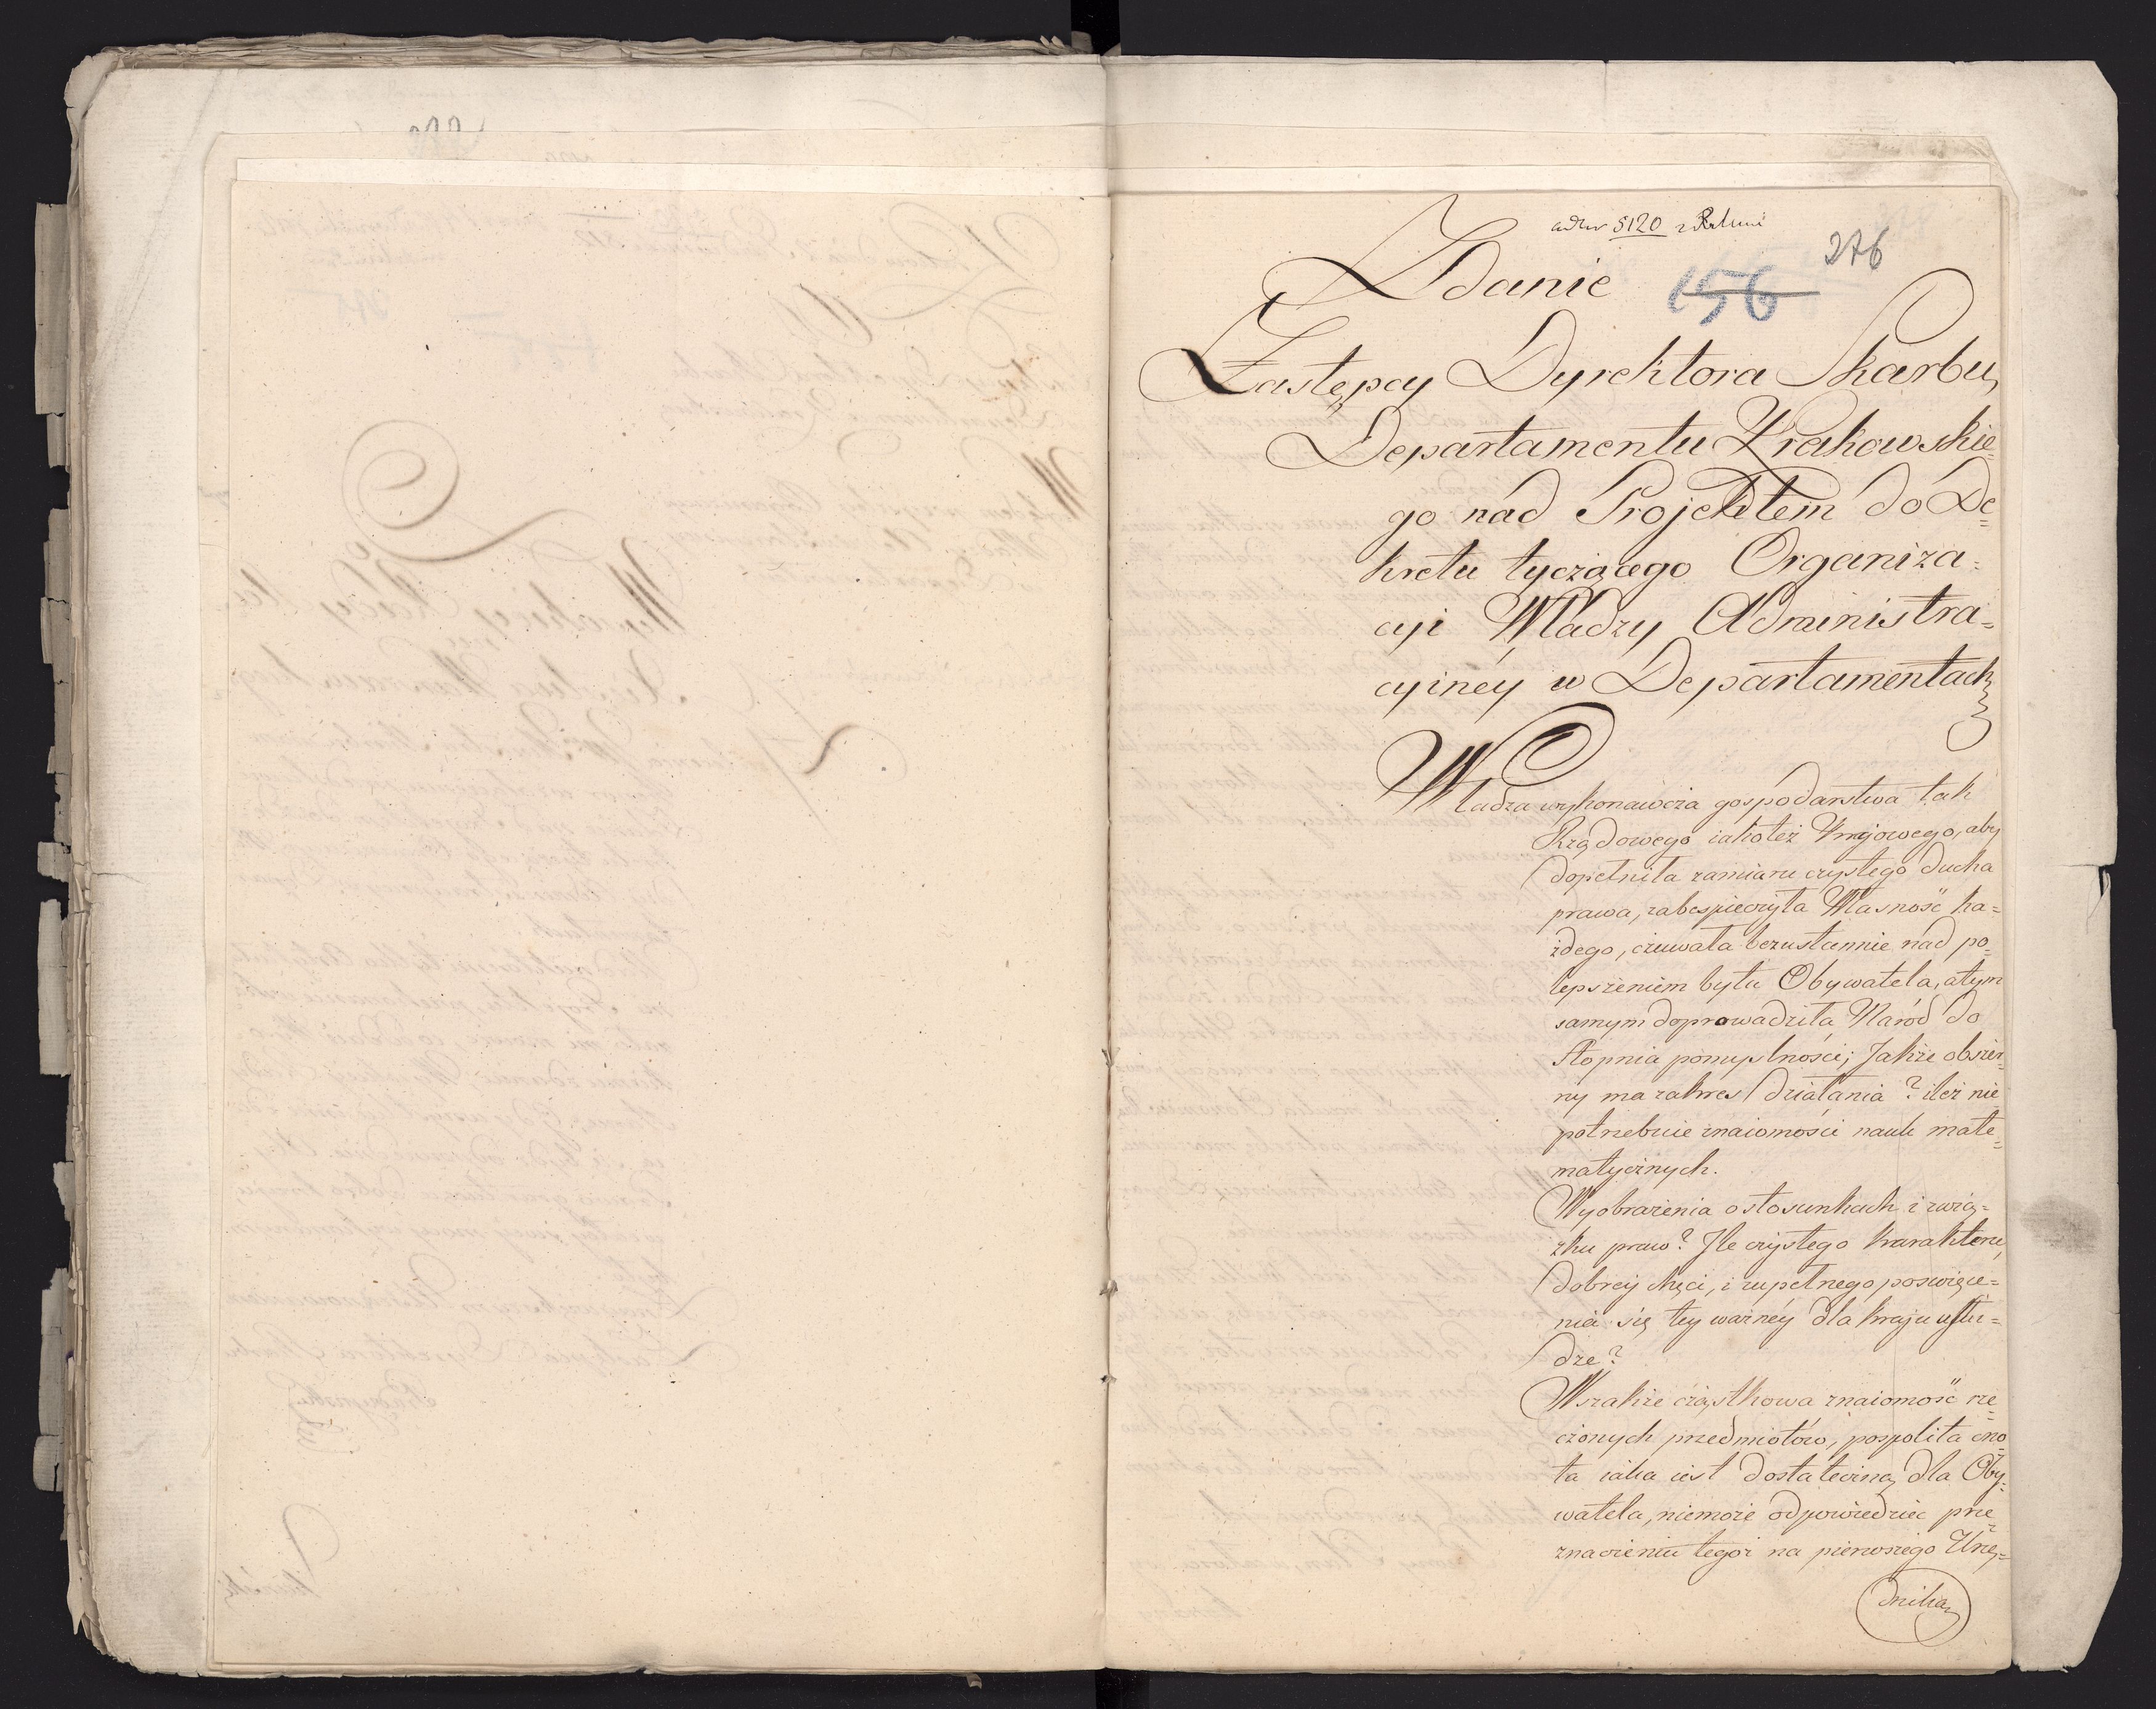 5120
276
156
Zdanie
Zastępcy Dyrektora Skarbu
Departamentu Krakowskie=
go nad Projektem do De=
kretu tyczącego Organiza=
cyi Władzy Administra=
cyinéy w Departamentach
Władza wykonawcza gospodarstwa tak
Rządowego iakoteż Krajowego, aby
dopełniła zamiaru czystego ducha
prawa, zabespieczyła Własność ka=
żdego, czuwała bezustannie nad po=
lepszeniem bytu Obywatela, atym
samym doprowadziła Naród do
Stopnia pomyslności; Jakże obszer=
ny ma zakres działania? ileż nie
potrzebuie znaiomości nauk mate=
matycznych.
Wyobrażenia o stosunkach i zwią=
zku praw? Jle czystego karakteru,
dobrey chęci, i zupełnego poswięce=
nia się tey ważnéy dla kraju usłu=
dze?
Wszakże cząstkowa znaiomość rze=
czonych przedmiotów, pospolita cno=
ta iaka iest dostateczną dla Oby=
watela, niemoże odpowiedzieć prze=
znaczeniu tegoż na pierwszego Urzę=
dnika